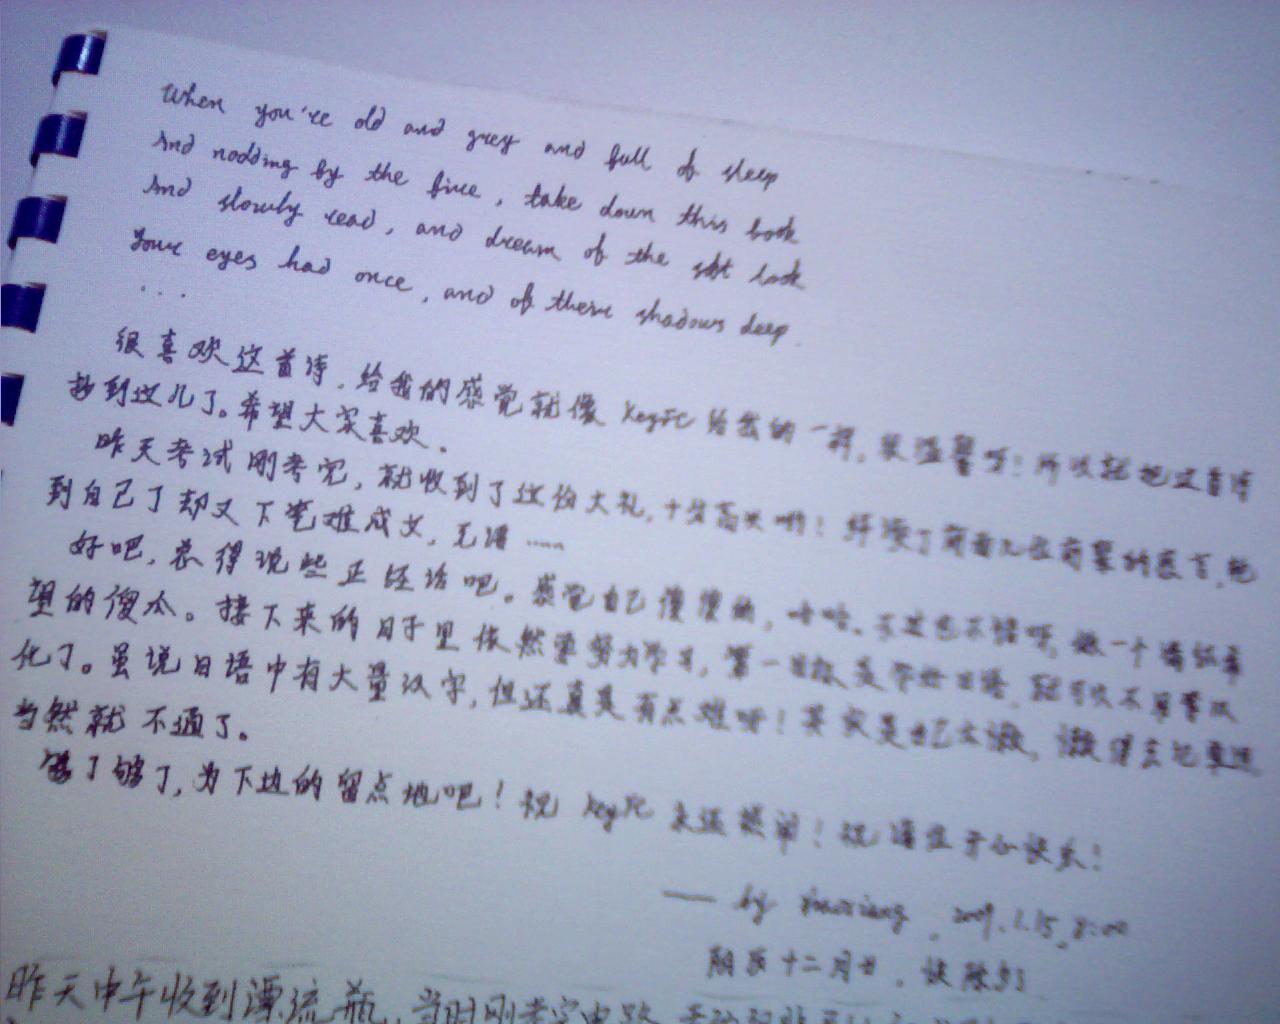 When you're old and grey and full of sleep
And nodding by the fire, take down this book
And slowly read, and dream of the soft look
Your eyes had once, and of their shadows deep.
...
很喜欢这首诗，给我的感觉就像 KeyFC 给我的一样，很温馨呀！所以就把这首诗
抄到这儿了。希望大家喜欢．
昨天考试刚考完，就收到了这份大礼，十分高兴哟！拜读了前面几位前辈的感言，轮
到自己了却又下笔难成文，无语……
好吧，总得说些正经话吧。感觉自己傻傻的，不过也不错呀，做一个
望的傻瓜。接下来的日子里依然要努力学习，第一目标是学好日语，就可以不用等汉
化了。虽说日语中有大量汉字，但还真是有点难呀！其实是自己太懒，懒得去记单词
当然就不通了。
够了够了，为下边的留点地吧！祝 KeyFC 永远热闹！祝诸位开心快乐！
—— by 2009.1.15, 8:00
阴历十二月廿，快除夕了
昨天中午收到漂流瓶，当时刚考完电路